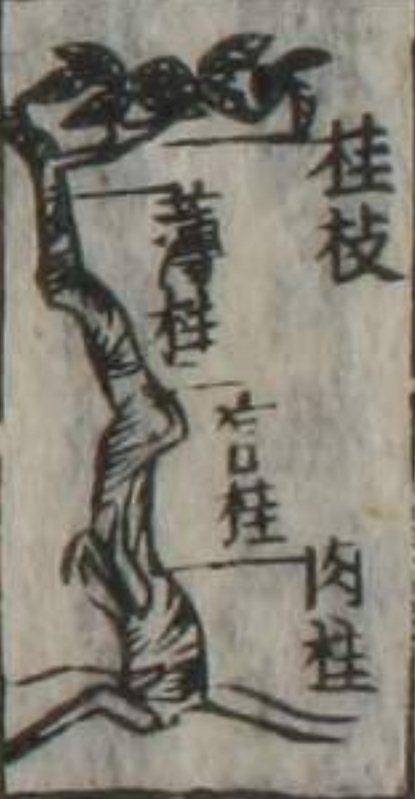 桂枝
薄桂
桂
肉桂